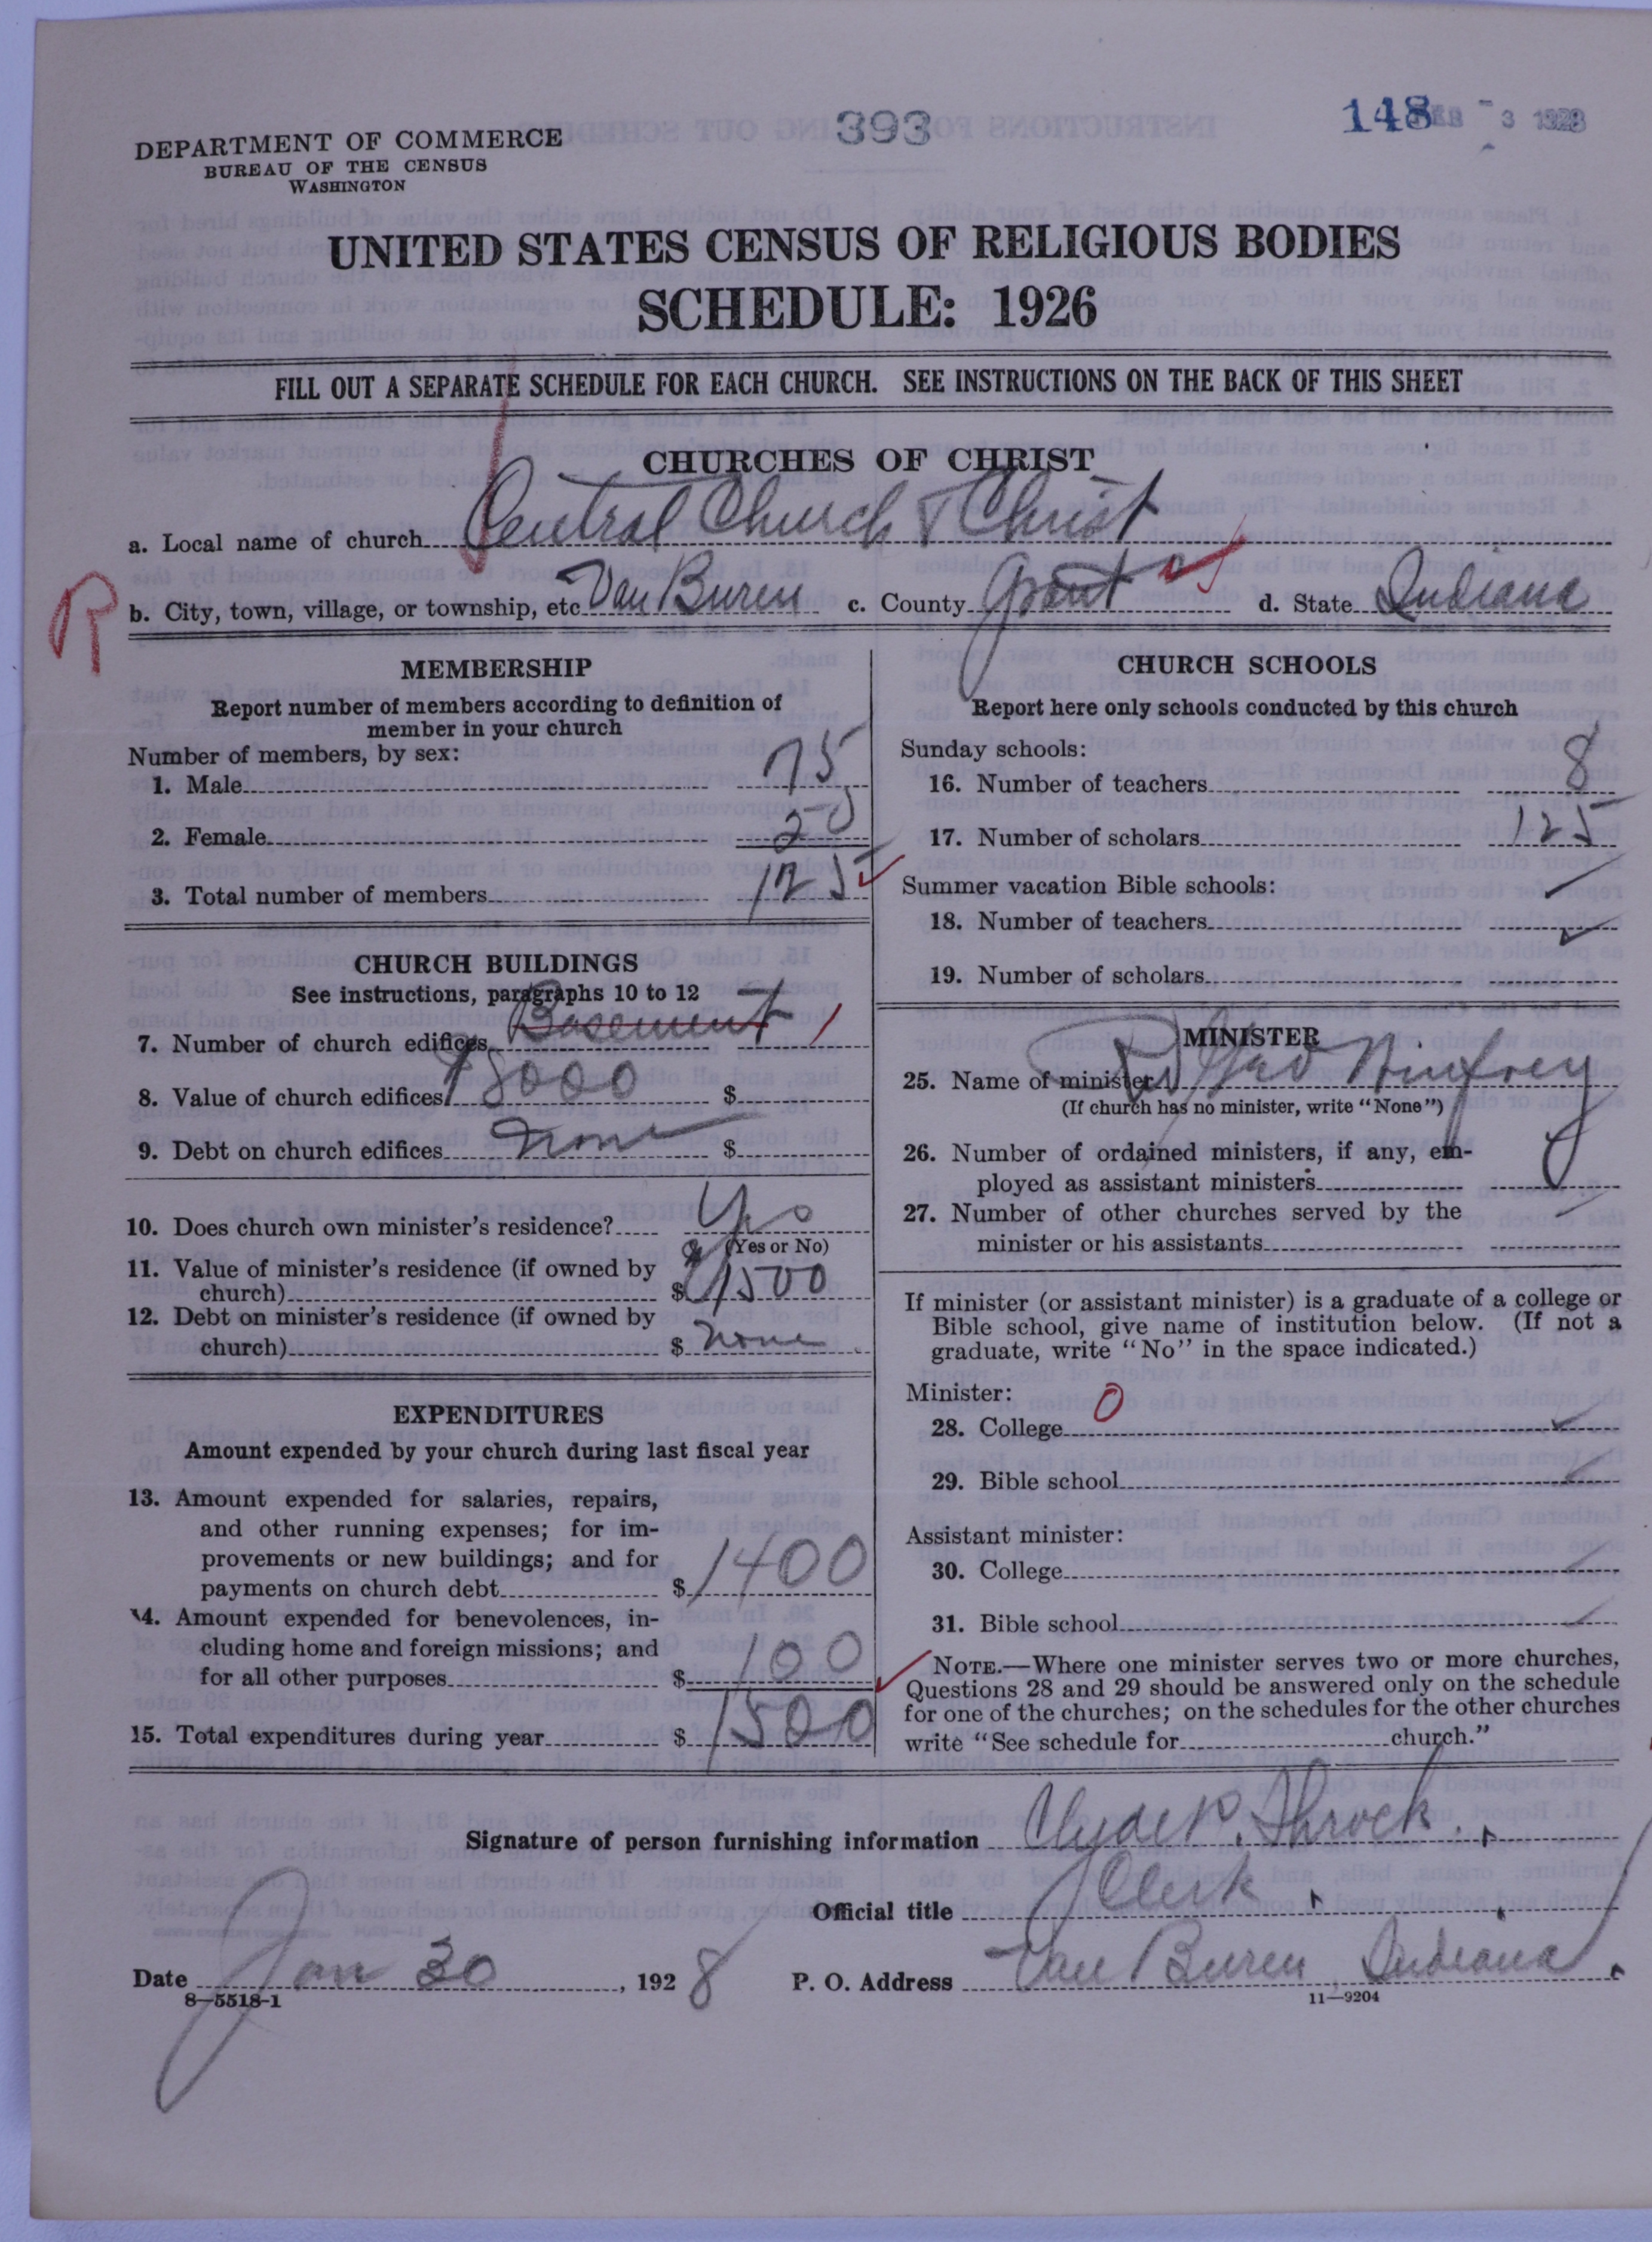 393
148
3 1928
DEPARTMENT OF COMMERCE
BUREAU OF THE CENSUS
WASHINGTON
UNITED STATES CENSUS OF RELIGIOUS BODIES
SCHEDULE: 1926
FILL OUT A SEPARATE SCHEDULE FOR EACH CHURCH. SEE INSTRUCTIONS ON THE BACK OF THIS SHEET
CHURCHES OF CHRIST
a. Local name of church Central Church of Christ
R
b. City, town, village, or township, etc Van Buren c. County Grant d. State Indiana
MEMBERSHIP
Report number of members according to definition of
member in your church
Number of members, by sex:
1. Male 75
2. Female
3. Total number of members 125
CHURCH BUILDINGS
See instructions, paragraphs 10 to 12
7. Number of church edifices Basement 1
8. Value of church edifices 8000 $
9. Debt on church edifices none $
10. Does church own minister's residence? Yes
(Yes or No)
11. Value of minister's residence (if owned by
church) $ 1500
12. Debt on minister's residence (if owned by
church) $ none
EXPENDITURES
Amount expended by your church during last fiscal year
13. Amount expended for salaries, repairs,
and other running expenses; for im-
provements or new buildings; and for
payments on church debt $ 1400
14. Amount expended for benevolences, in-
cluding home and foreign missions; and
for all other purposes $ 100
15. Total expenditures during year $ 1500
CHURCH SCHOOLS
Report here only schools conducted by this church
Sunday schools:
16. Number of teachers 8
17. Number of scholars 125
Summer vacation Bible schools:
18. Number of teachers
19. Number of scholars
MINISTER
25. Name of minister
(If church has no minister, write "None")
26. Number of ordained ministers, if any, em-
ployed as assistant ministers
27. Number of other churches served by the
minister or his assistants
If minister (or assistant minister) is a graduate of a college or
Bible school, give name of institution below. (If not a
graduate, write "No" in the space indicated.)
Minister: 0
28. College
29. Bible school
Assistant minister:
30. College
31. Bible school
NOTE.—Where one minister serves two or more churches,
Questions 28 and 29 should be answered only on the schedule
for one of the churches; on the schedules for the other churches
write "See schedule for church."
Signature of person furnishing information Clyde P. Shrock.
Official title Clerk
Date Jan 30, 1928 P. O. Address Van Buren, Indiana.
8—5518-1
11—9204